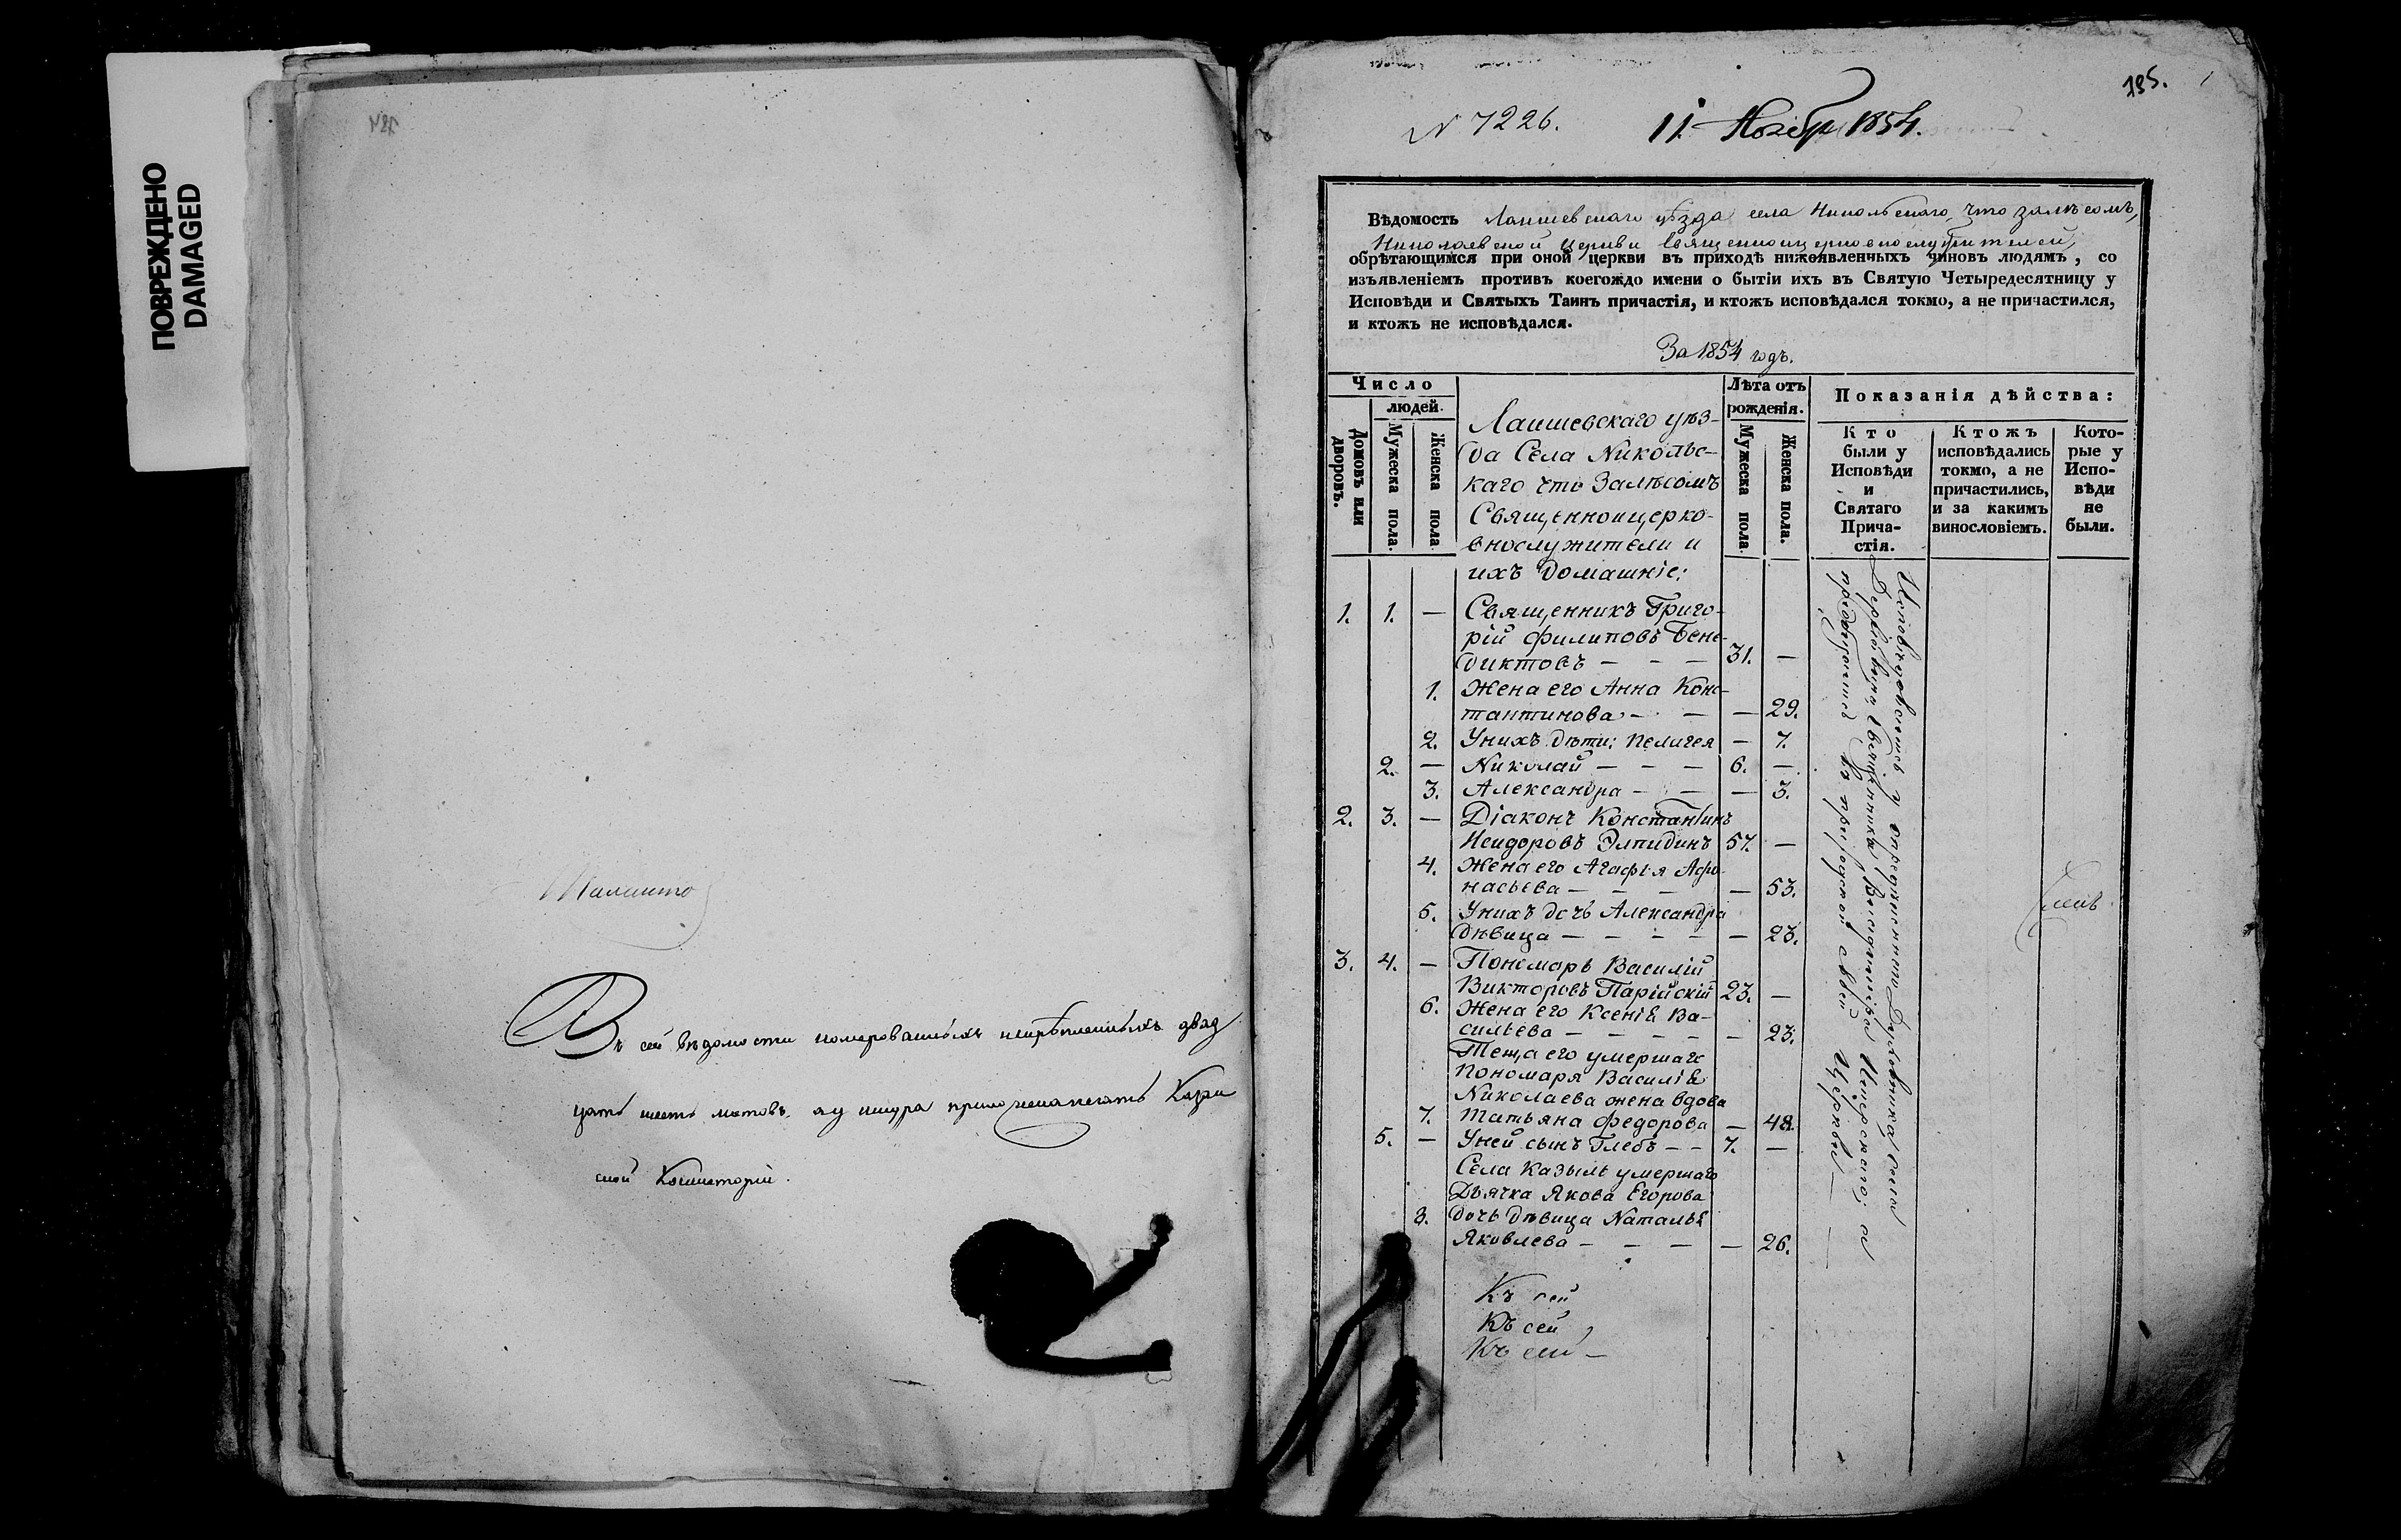 ПОВРЕЖДЕНО
DAMAGED
Въ сей вѣдомости номерованныхъ искрѣпленныхъ двад
цать шесть листовъ, ау шнура приложена печать Казан
ской Консисторіи.
195.
N 7226.
11 Ноября 1854.
Вѣдомость Лаишевскаго уѣзда села Никольскаго, что залѣсомъ,
Николаевской церкви Священноцерковнослужителей,
обрѣтающимся при оной церкви въ приходѣ нижеявленныхъ чиновъ людямъ, со
изъявленіемъ противъ коегождо имени о бытіи ихъ въ Святую Четыредесятницу у
Исповѣди и Святыхъ Таинъ причастія, и ктожъ исповѣдался токмо, а не причастился,
и ктожъ не исповѣдался.
За 1854 годъ.
Число
людей.
Домовъ или дворовъ.
Мужеска пола.
Женска пола
Лѣта отъ
рожденія.
Мужеска пола.
Женска пола.
Показанія дѣйства:
Кто
были у
Исповѣди
и
Святаго
Прича-
стія.
Ктожъ
исповѣдались
токмо, а не
причастились,
и за какимъ
винословіемъ.
Кото-
рые у
Испо-
вѣди
не
были.
Лаишевскаго уѣз-
да Села Николь-
скаго что Залѣсомъ
Священноицерко-
внослужители и
ихъ домашніе:
1. 1. — Священникъ Григо-
рій Филиповъ Бене-
диктовъ — — — 31. —
1. Жена его Анна Конс-
тантинова — — — 29.
2. Унихъ дѣти: Пелагея — 7.
2. — Николай — — — 6. —
3. Александра — — — 3.
2. 3. — Діаконъ Константинъ
Исидоровъ Элпидинъ 57. —
4. Жена его Агафья Афо-
насьева — — — — 53.
5. Унихъ дочь Александра
дѣвица — — — — — 23.
3. 4. — Пономарь Василій
Викторовъ Парійскій 23. —
6. Жена его Ксенія Ва-
сильева — — — — — 23.
Теща его умершаго
Пономаря Василія
Николаева жена вдова
7. Татьяна Федорова — 48.
5. — Уней сынъ Глебъ — — 7. —
Села Казыль умершаго
Дьячка Якова Егорова
8. дочь дѣвица Наталья
Яковлева — — — — 26.
Къ сей
Къ сей
Къ сей —